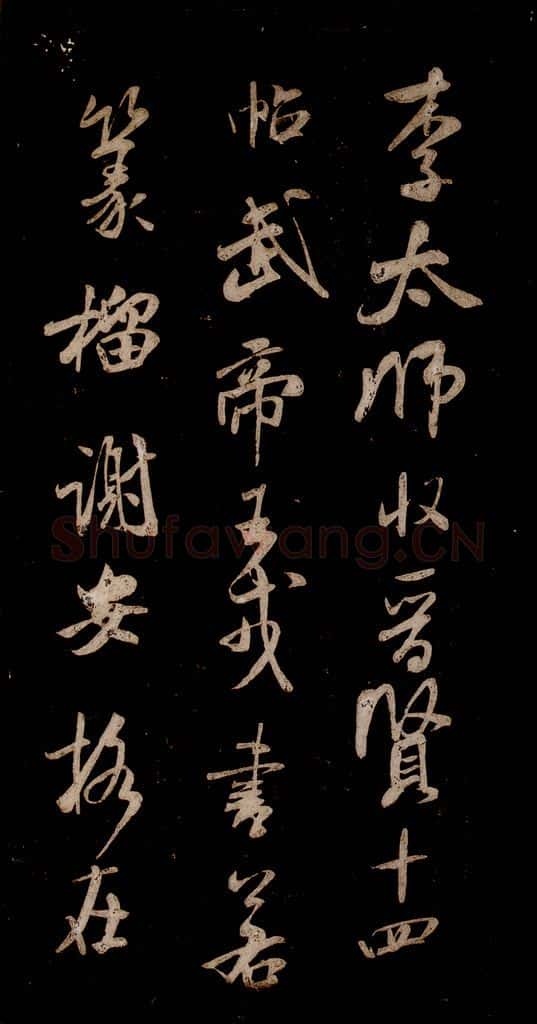 李太師收晉賢十四
帖武帝王戎書若
篆榴謝安格在
Shufawang.CN